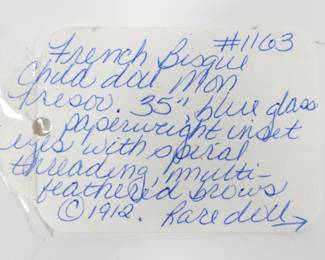 French Bisque #1163
Child doll Mon
Tresor. 35", blue glass
paperweight inset
eyes with spiral
threading, multi-
feathered brows
©1912. Rare doll →